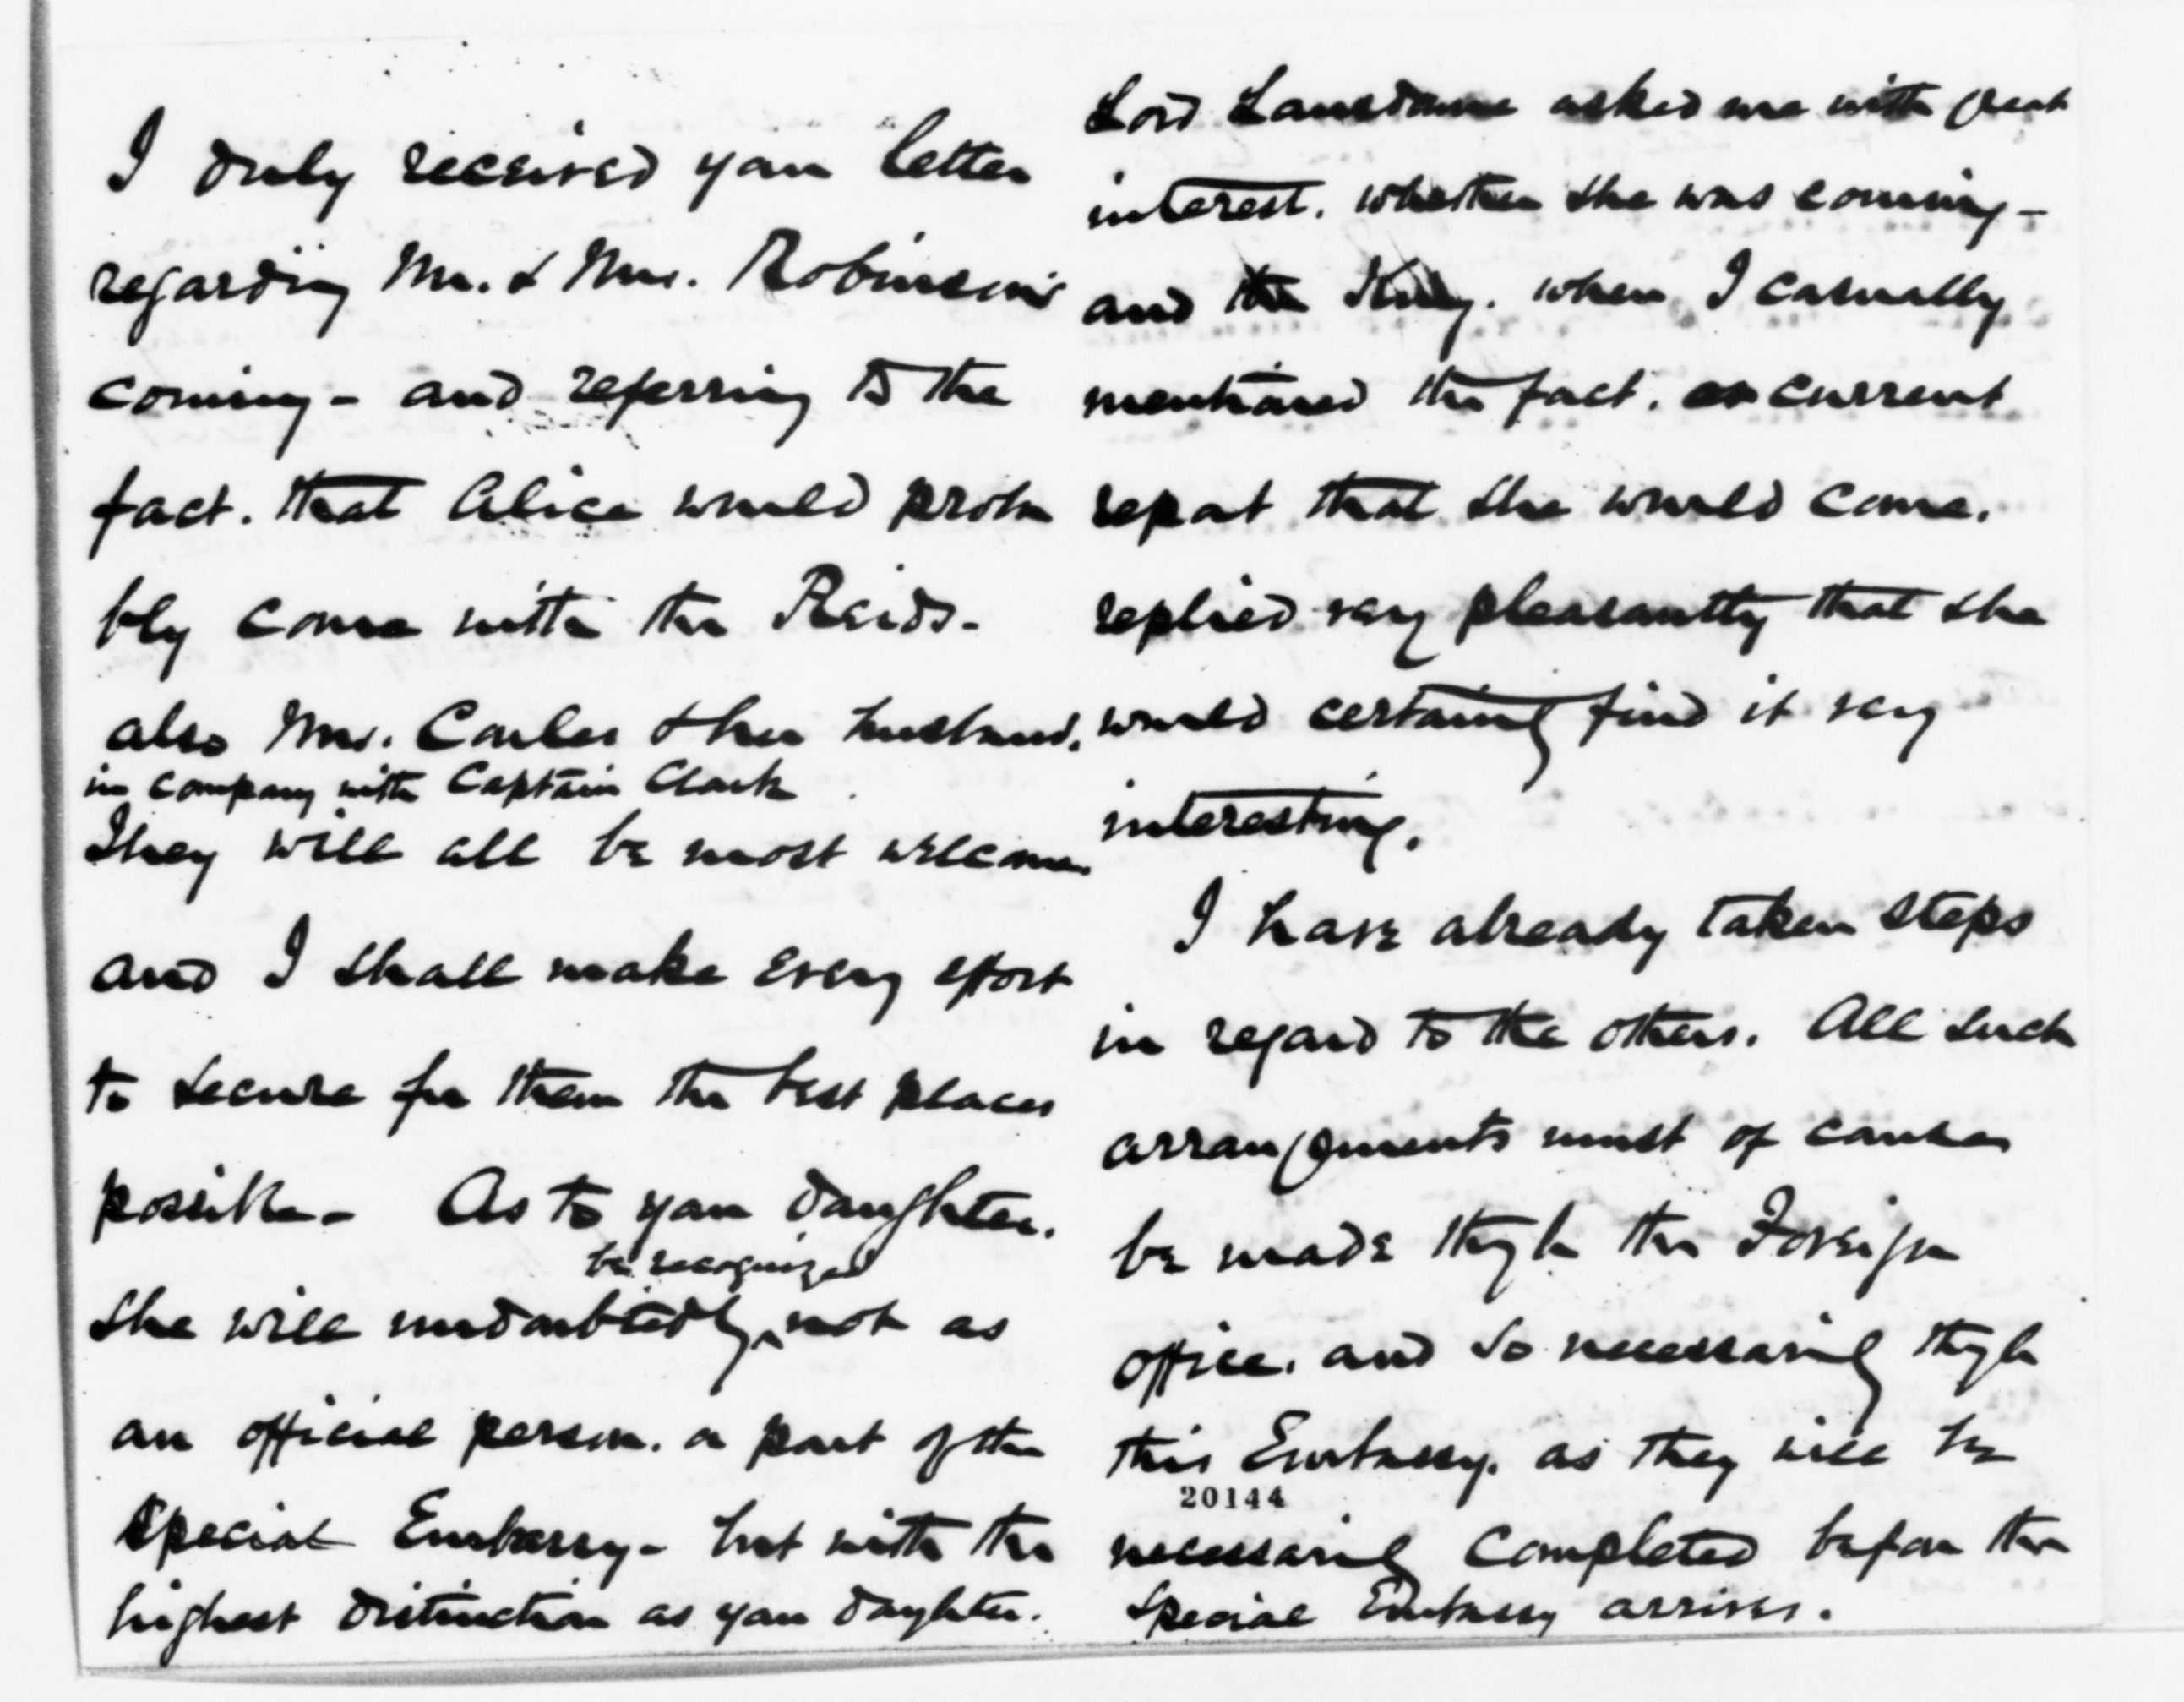 I duly received your letter
regarding Mr. & Mrs. Robinson's
coming - and referring to the
fact. that Alice would proba
bly come with the Reids.
also Mrs. Cowles & her husband.
in company with Captain Clark
They will all be most welcome
and I shall make every effort
to secure for them the best places
possible - As to your daughter.
be recognized
She will undoubtedly ^ not as
an official person. a part of the
Special Embassy - but with the
highest distinction as your daughter.
Lord Lansdowne asked me with great
interest. whether she was coming -
and the King. when I casually
mentioned the fact. or current
report that she would come.
replied very pleasantly that she
would certainly find it very
interesting.
I have already taken steps
in regard to the others. All such
arrangements must of course
be made thrgh the Foreign
office. and so necessarily thrgh
this Embassy. as they will be
20144
necessarily completed before the
Special Embassy arrives.